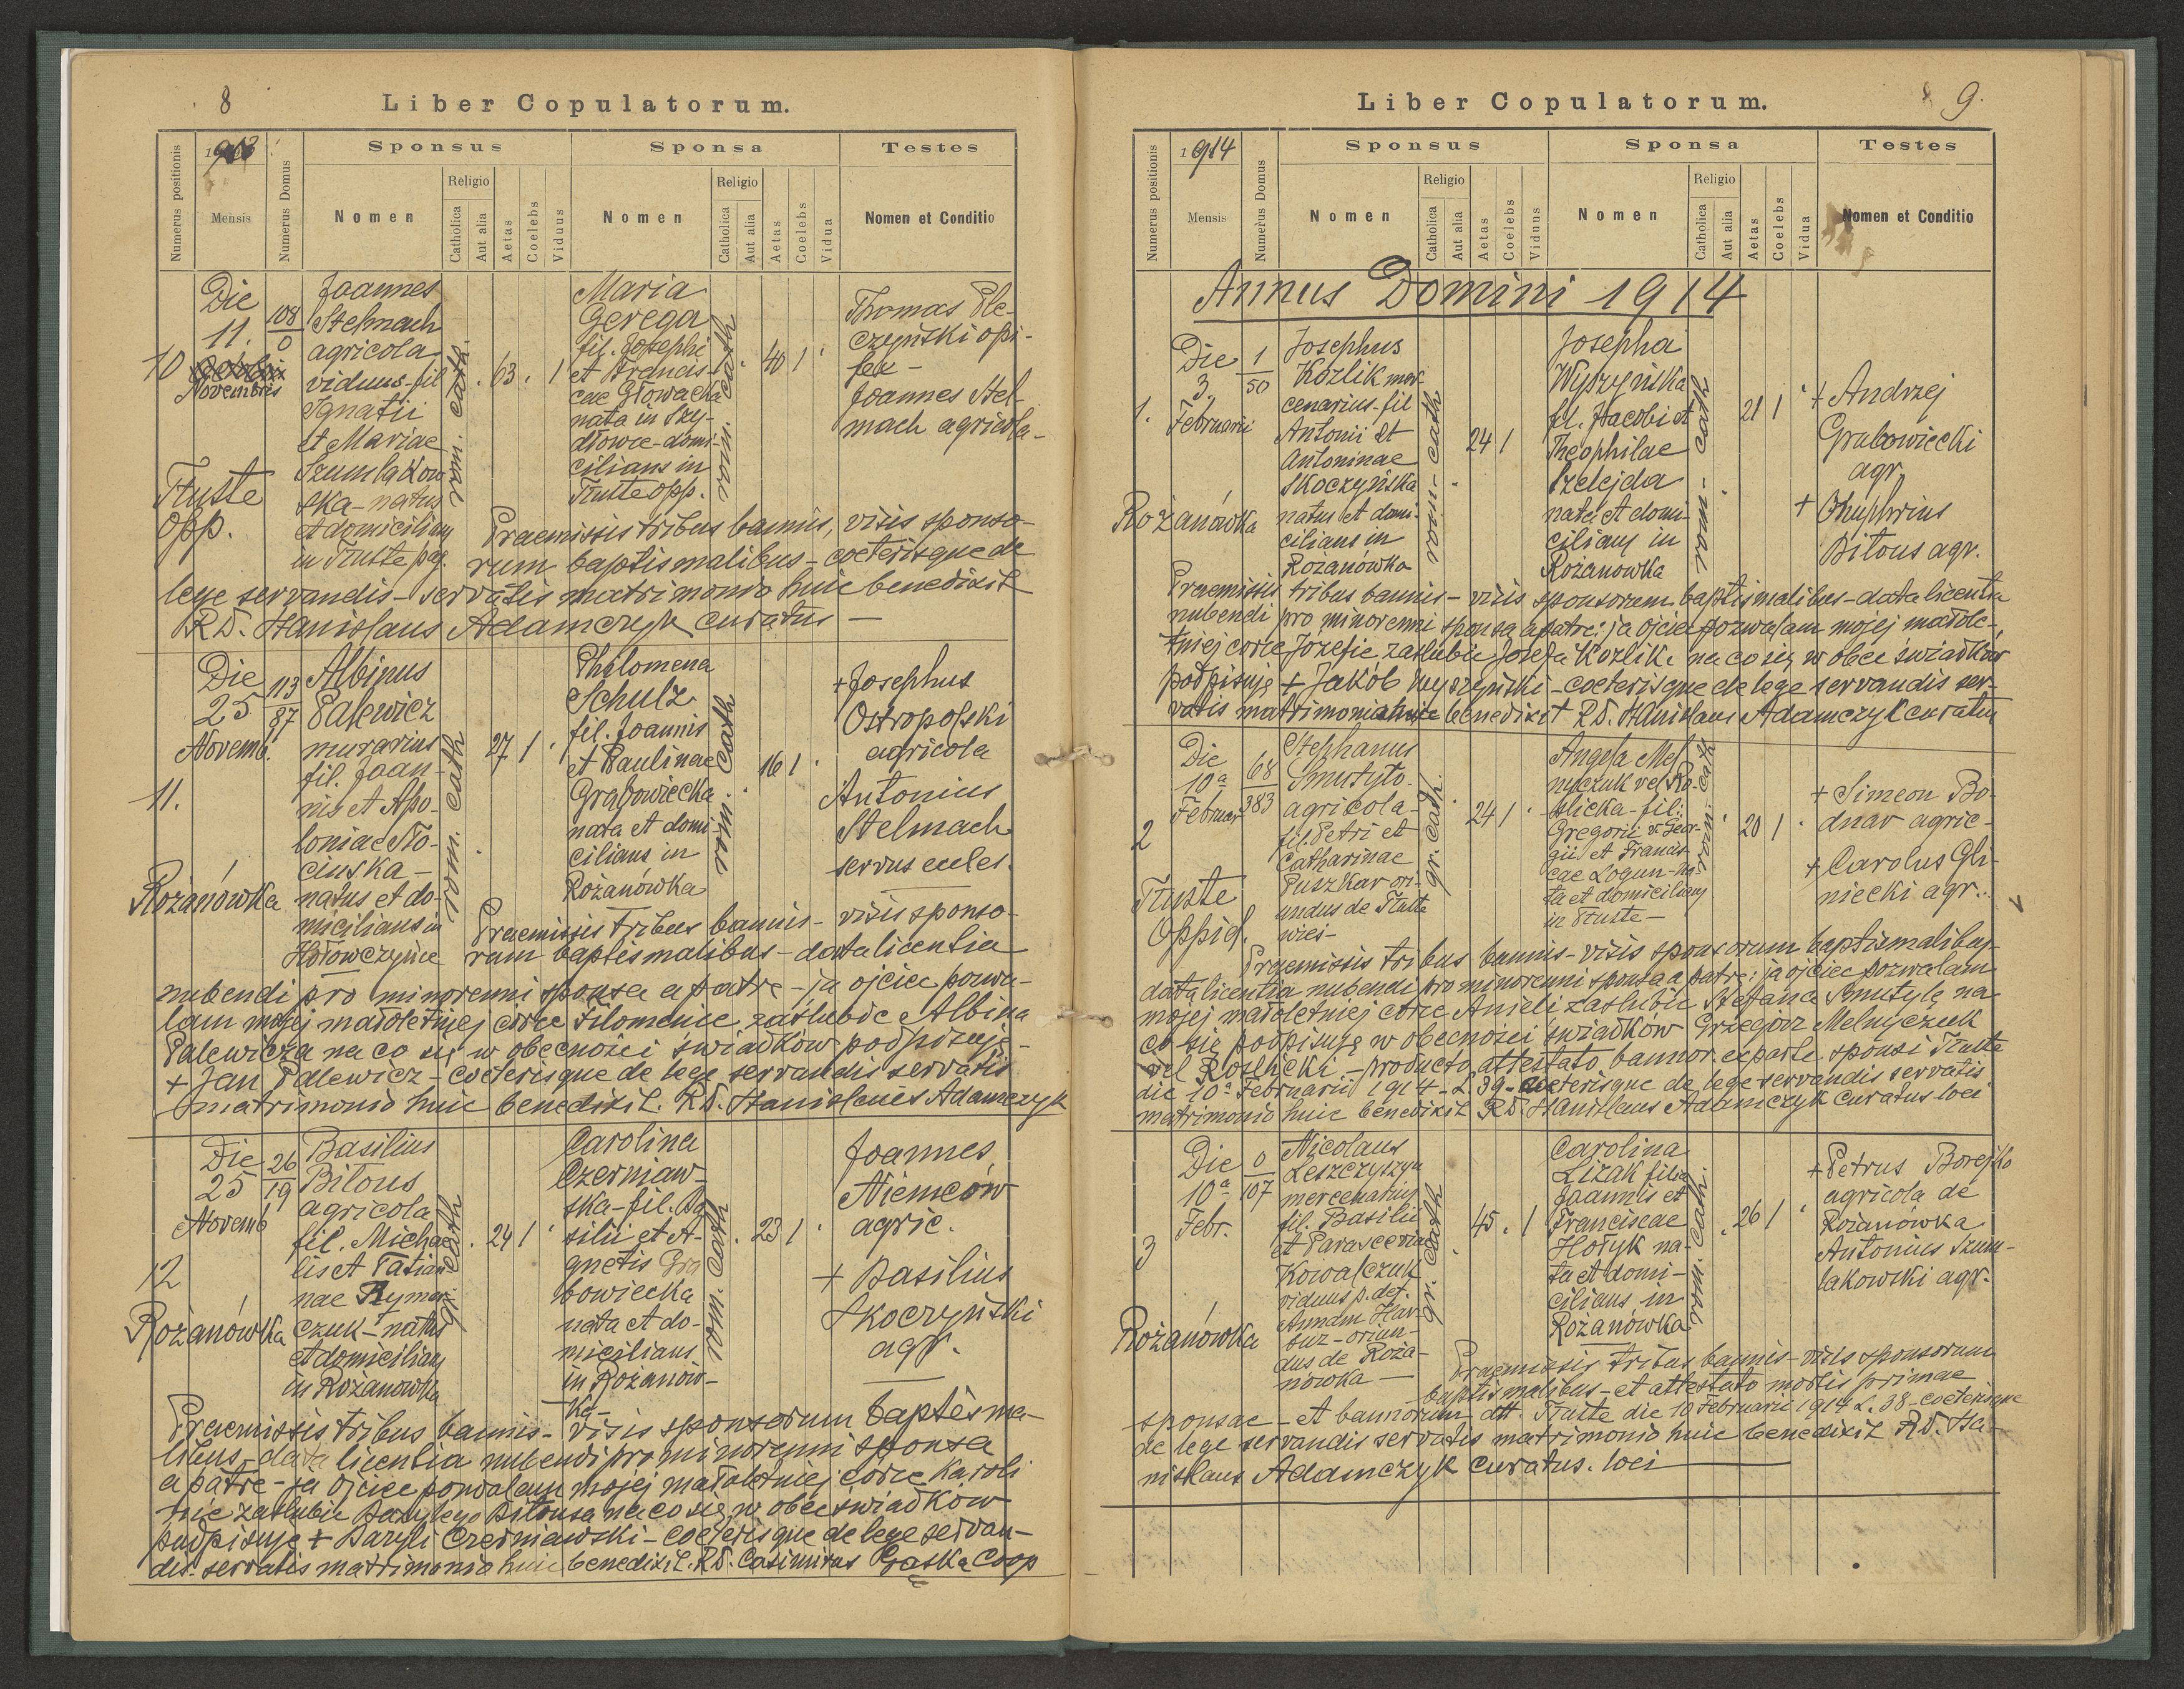 8
Liber Copulatorum.
Numerus positionis
1913
Mensis
Numerus Domus
Sponsus
Nomen
Religio
Catholica
Aut alia
Aetas
Coelebs
Viduus
Sponsa
Nomen
Religio
Catholica
Aut alia
Aetas
Coelebs
Vidua
Testes
Nomen et Conditio
10
Tłuste
Opp.
Die
11.
Novembris
108
0
Joannes
Stelmach
agricola
viduus - fil
Ignatii
et Mariae
Szumlakow
ska - natus
et domicilians
in Tłuste pag.
rom. cath.
63. 1
Maria
Gerega
fil. Josephi
et Francis-
cae Głowacka
nata in Szy-
dłowce - domi-
cilians in
Tłuste opp.
rom. cath
40 1
Thomas Ple-
czyński opi-
fex -
Joannes Stel-
mach agricola -
Praemissis tribus bannis, visis sponso-
rum baptismalibus - coeterisque de
lege servandis - servatis matrimonio huic benedixit
RD. Stanislaus Adamczyk curatus -
11.
Rożanówka
Die
25
Novemb.
113
87
Albinus
Palewicz
murarius
fil. Joan-
nis et Apo-
loniae
natus et do-
micilians in
Hołowczyńce
rom. cath
27 1
Philomena
Schulz
fil. Joannis
et Paulinae
Grabowiecka
nata et domi-
cilians in
Rożanówka
rom. cath
16 1
+ Josephus
Ostropolski
agricola
Antonius
Stelmach
servus eccles.
Praemissis tribus bannis - visis sponso-
rum baptismalibus - data licentia
nubendi pro minorenni sponsa a patre - ja ojciec pozwa-
lam mojej małoletniej córce Filomenie zaślubić Albina
Palewicza na co się w obecności świadków podpisuję -
+ Jan Palewicz - coeterisque de lege servandis servatis
matrimonio huic benedixit. RD. Stanislaus Adamczyk
12
Rożanówka
Die
25
Novemb
26
19
Basilius
Bitous
agricola
fil. Michae
lis et Tatian
nae Rymar
czuk - natus
et domicilians
in Rożanówka
gr. cath
24 1
Carolina
Czerniaw-
ska - fil. Ba
silii et A-
gnetis Gra
bowiecka
nata et do-
micilians
in Rożanów-
ka -
rom. cath
23 1
Joannes
Niemców
agric.
+ Basilius
Skoczyński
agr.
Praemissis tribus bannis - visis sponsorum baptisma-
libus - data licentia nubendi pro minorenni sponsa
a patre - ja ojciec pozwalam mojej małoletniej córce Karoli
nie zaślubić Bazylego Bitousa na co się w obec świadków
podpisuję + Bazyli Czerniawski - coeterisque de lege servan-
dis servatis matrimonio huic benedixit. RD. Casimirus Coop
9.
Liber Copulatorum.
Numerus positionis
1914
Mensis
Numerus Domus
Sponsus
Nomen
Religio
Catholica
Aut alia
Aetas
Coelebs
Viduus
Sponsa
Nomen
Religio
Catholica
Aut alia
Aetas
Coelebs
Vidua
Testes
Nomen et Conditio
Annus Domini 1914
1.
Rożanówka
Die
3
Februarii
1
50
Josephus
Kozlik mer
cenarius - fil
Antonii et
Antoninae
Skoczyńska
natus et domi-
cilians in
Rożanówka
rom - cath
24 1
Josepha
Wyszyńska
fil. Jacobi et
Theophilae
Szelejda
nata et domi-
cilians in
Rożanówka
rom - cath
21 1
+ Andrzej
Grabowiecki
agr.
+ Onuphrius
Bitous agr.
Praemissis tribus bannis - visis sponsorum baptismalibus - data licentia
nubendi pro minorenni sponsa a patre: ja ojciec pozwalam mojej małole-
tniej córce Józefie zaślubić Josefa Kozlika na co się w obec świadków
podpisuję + Jakób Wyszyński - coeterisque de lege servandis ser-
vatis matrimonio huic benedixit RD. Stanislaus Adamczyk curatus
2
Tłuste
Oppid.
Die
10ª
Februar
68
383
Stephanus
Smutyło
agricola -
fil. Petri et
Catharinae
Puszkar ori-
undus de Tłuste
wieś -
gr. cath.
24 1
Angela Mel
nyczuk vel Ro-
slicka - fil:
Gregorii v. Geor-
gii et Francis
cae Logun - na-
ta et domicilians
in Tłuste -
rom: cath
20 1
+ Simeon Bo-
dnar agric -
+ Carolus Gli-
niecki agr.
Praemissis tribus bannis - visis sponsorum baptismalibus -
data licentia nubendi pro minorenni sponsa a patre: ja ojciec pozwalam
mojej małoletniej córce Anieli zaślubić Stefana Smutyłę na
co się podpisuję w obecności świadków Grzegórz Melnyczuk
vel Roslicki - producto attestato bannor. ex parte sponsi Tłuste
die 10ª Februarii 1914 - L 39 - coeterisque de lege servandis servatis
matrimonio huic benedixit RD. Stanislaus Adamczyk curatus loci
3
Rożanówka
Die
10ª
Febr.
0
107
Nicolaus
Leszczyszyn
mercenarius
fil. Basilii
et Parasceviae
Kowalczuk
viduus p. def.
Annam Har-
buz - oriun-
dus de Roża-
nówka -
gr. cath
45. 1
Carolina
Lizak filia
Joannis et
Franciscae
Hołyk na-
ta et domi-
cilians in
Rożanówka
rom. cath.
26 1
+ Petrus Borejko
agricola de
Rożanówka
Antonius Szum-
lakowski agr.
Praemissis tribus bannis - visis sponsorum
baptismalibus - et attestato mortis primae
sponsae - et bannorum dtt. Tłuste die 10 Februarii 1914 L. 38 - coeterisque
de lege servandis servatis matrimonio huic benedixit RD. Sta-
nislaus Adamczyk curatus. loci